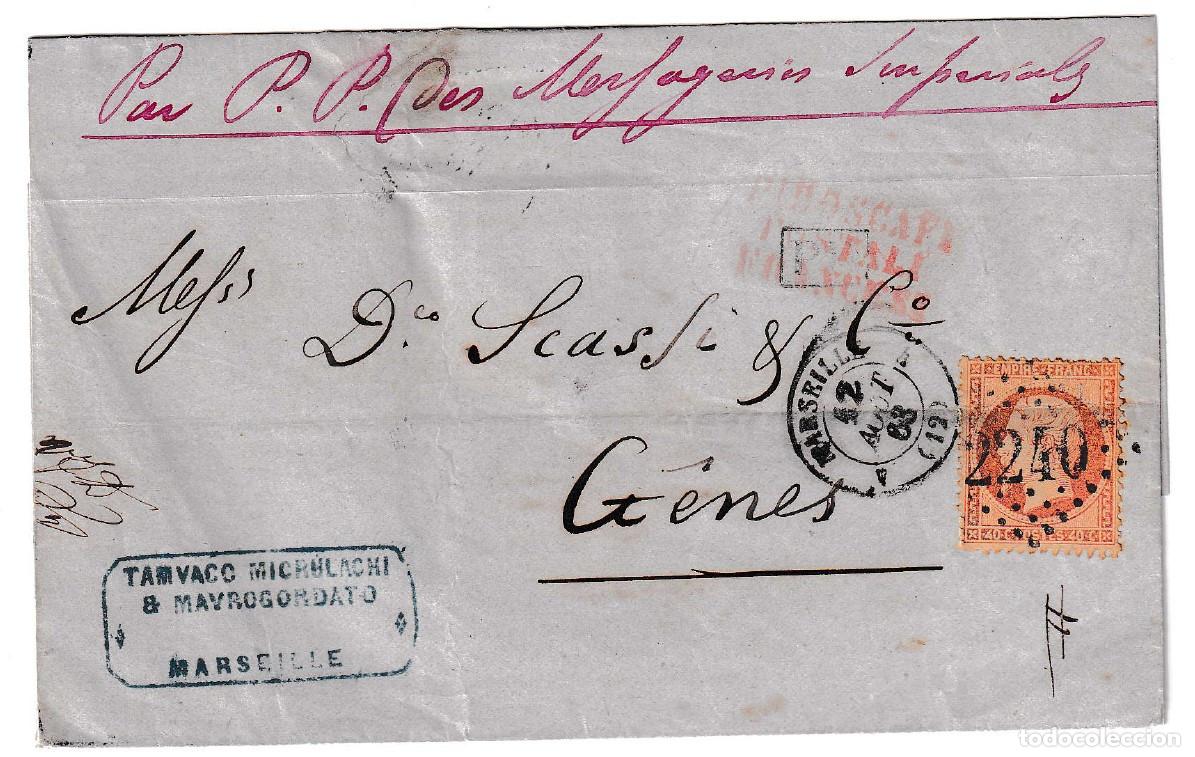 Par P. P. des Messageries Imperiales
PIROSCAFI
POSTALI
FRANCESI
P.P.
Mess
Dco Scassi & Co
Gênes
MARSEILLE
12
AOUT
63
(12)
EMPIRE FRANC
2240
40 CENTES 40 C
TAMVACO MICRULACHI
& MAVROGORDATO
MARSEILLE
todocoleccion